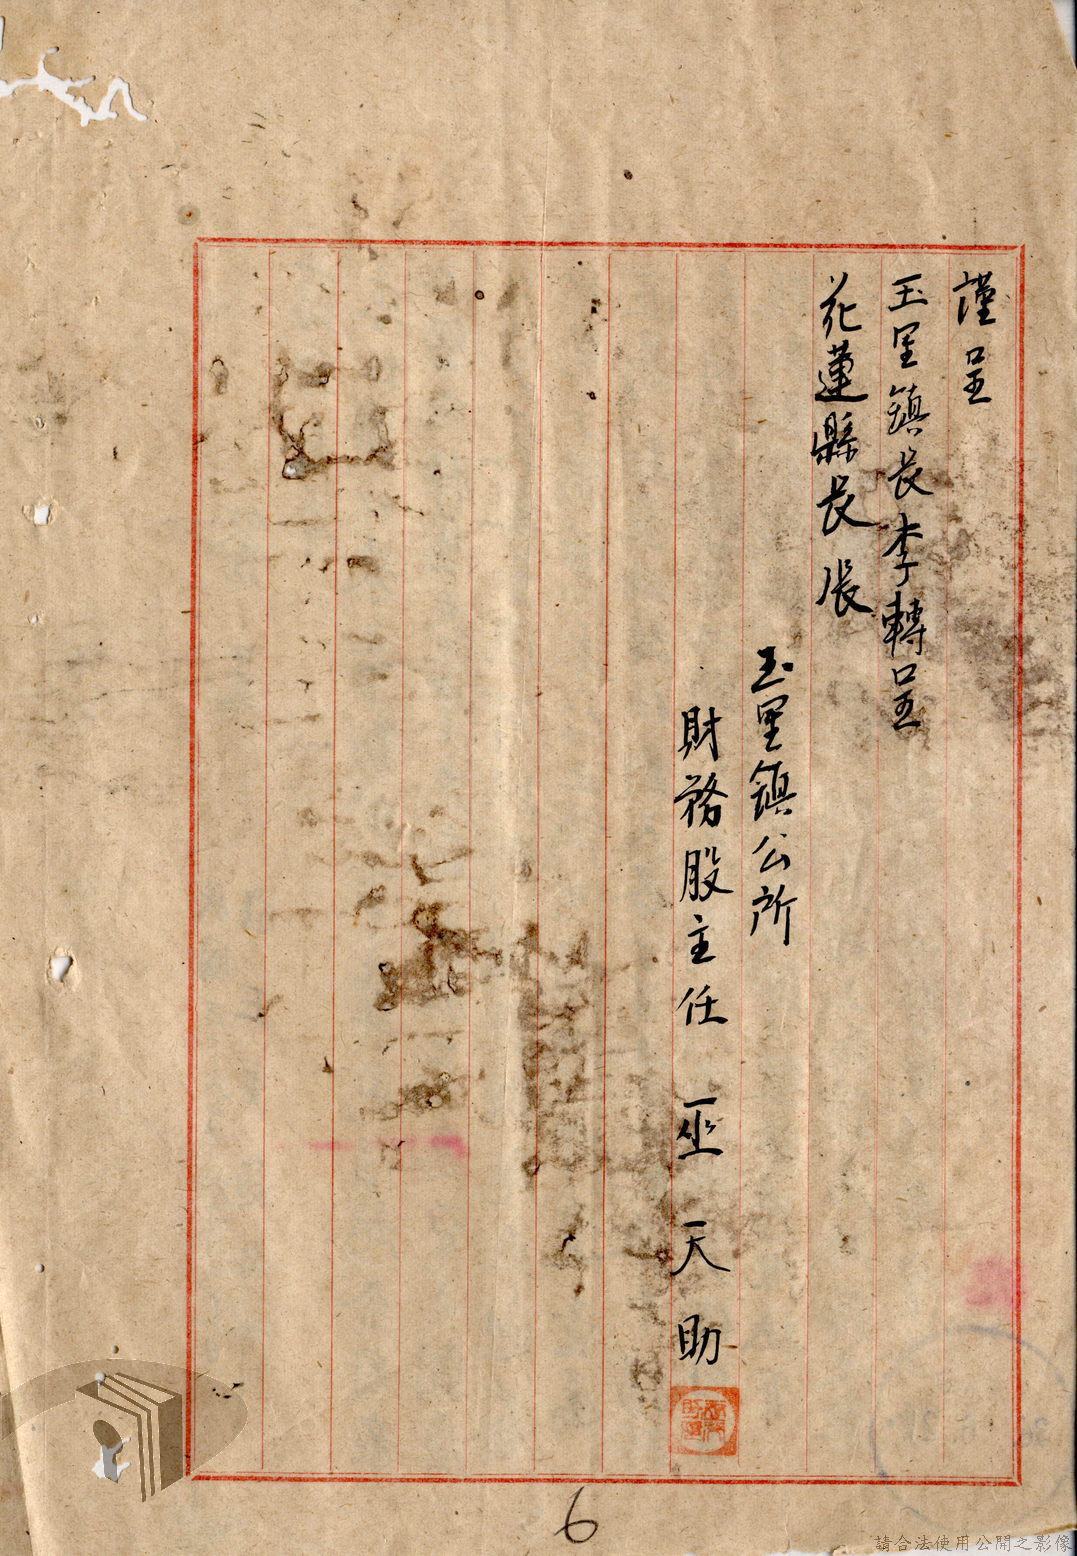 謹呈
玉里鎮長李轉呈
花蓮縣長張
玉里鎮公所
財務股主任 巫天助
6
請合法使用公開之影像